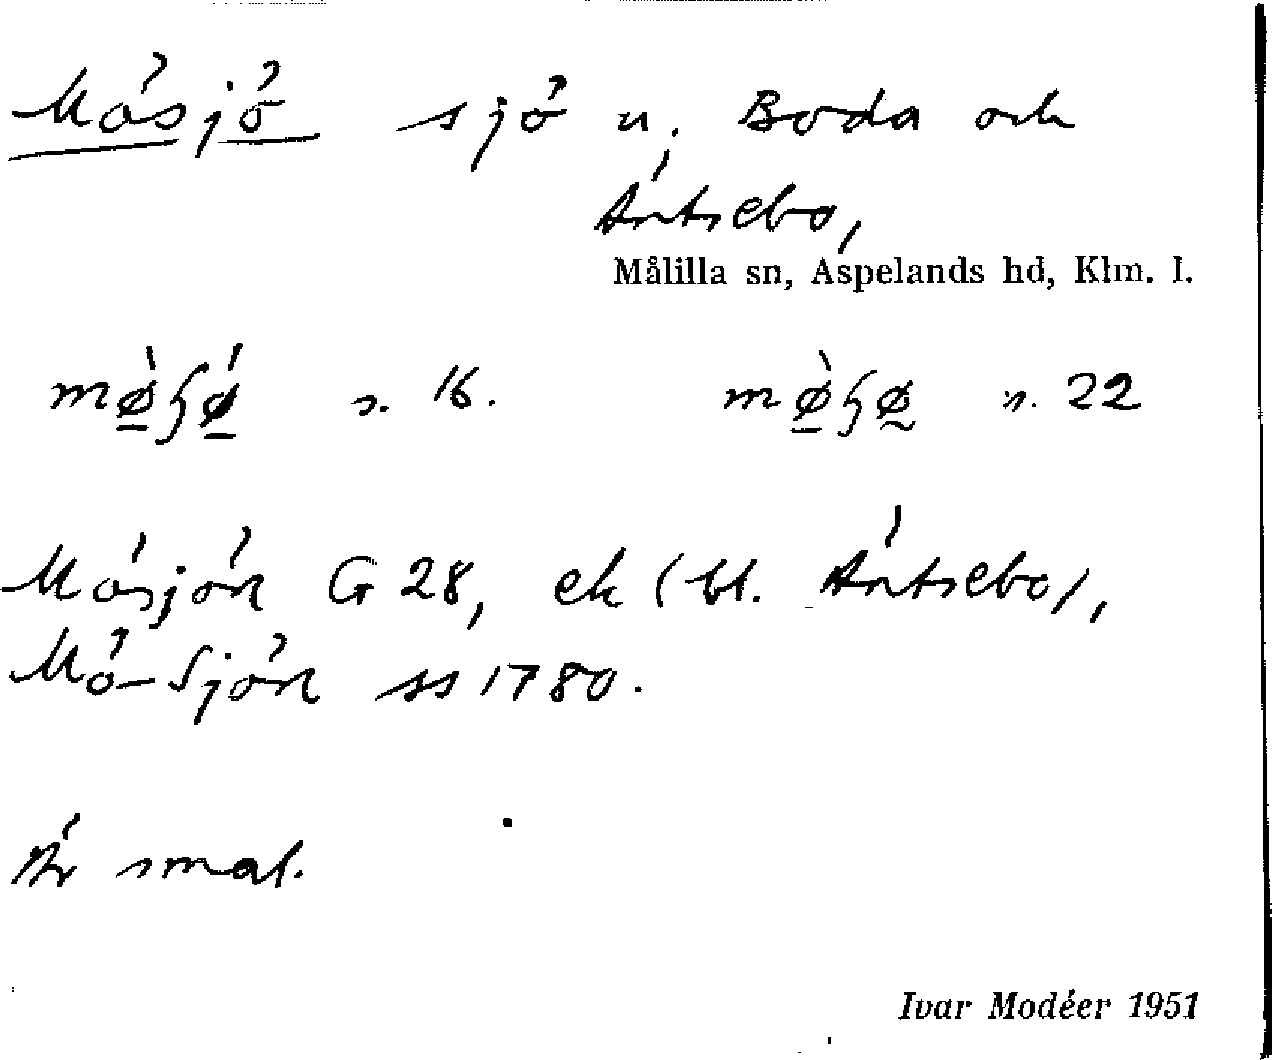 Mösjö sjö u. Boda och
Äntsebo,
Målilla sn, Aspelands hd, Klm. l.
s. 16. s. 22
Mösjön G 28, ek (bl. Äntsebo),
Mö-Sjön ss 1780.
Är smal.
Ivar Modéer 1951